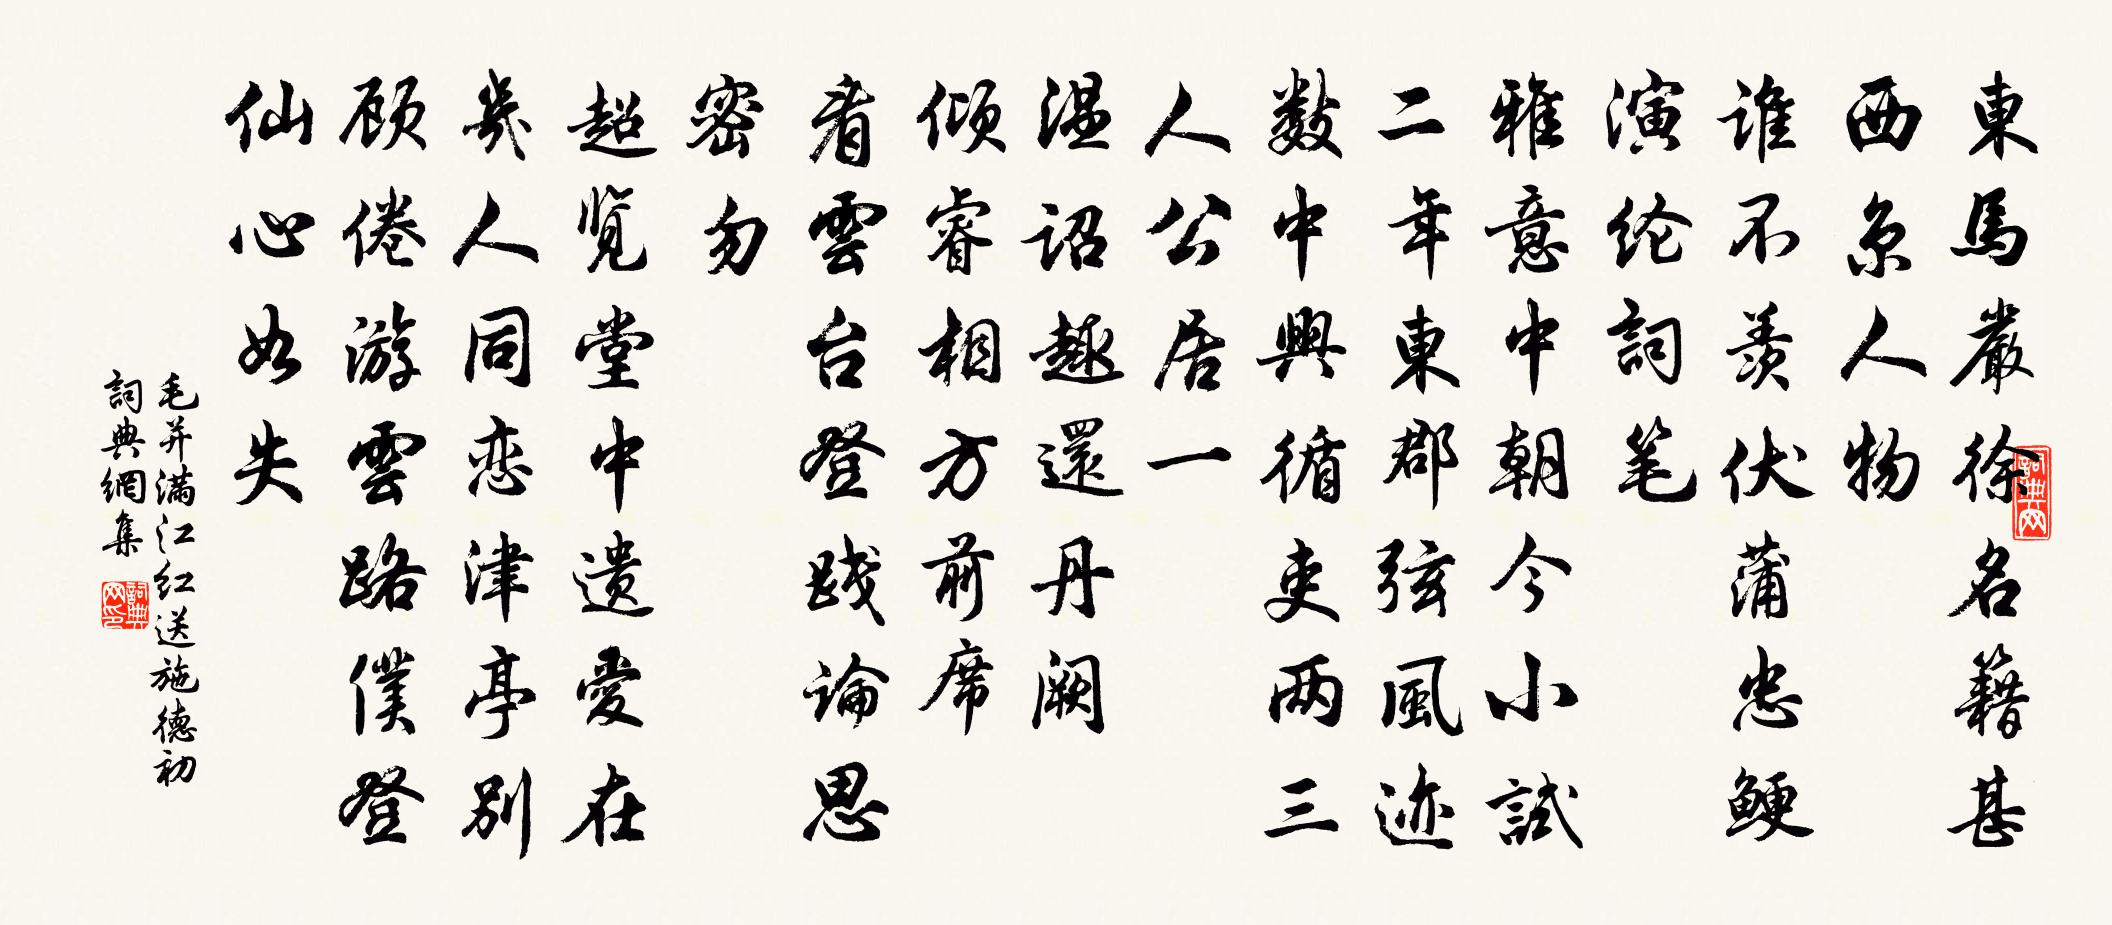 東馬嚴徐名籍甚
西京人物
谁不羨伏蒲忠鯁
演纶詞笔
雅意中朝今小試
二年東郡弦風迹
数中興循吏两三
人公居一
温诏趣還丹阙
倾睿相方前席
看雲台登践論思
密勿
超览堂中遗愛在
幾人同恋津亭别
顾倦游雲路僕登
仙心如失
毛并满江红送施德初
詞典網集
詞典网
詞典网印